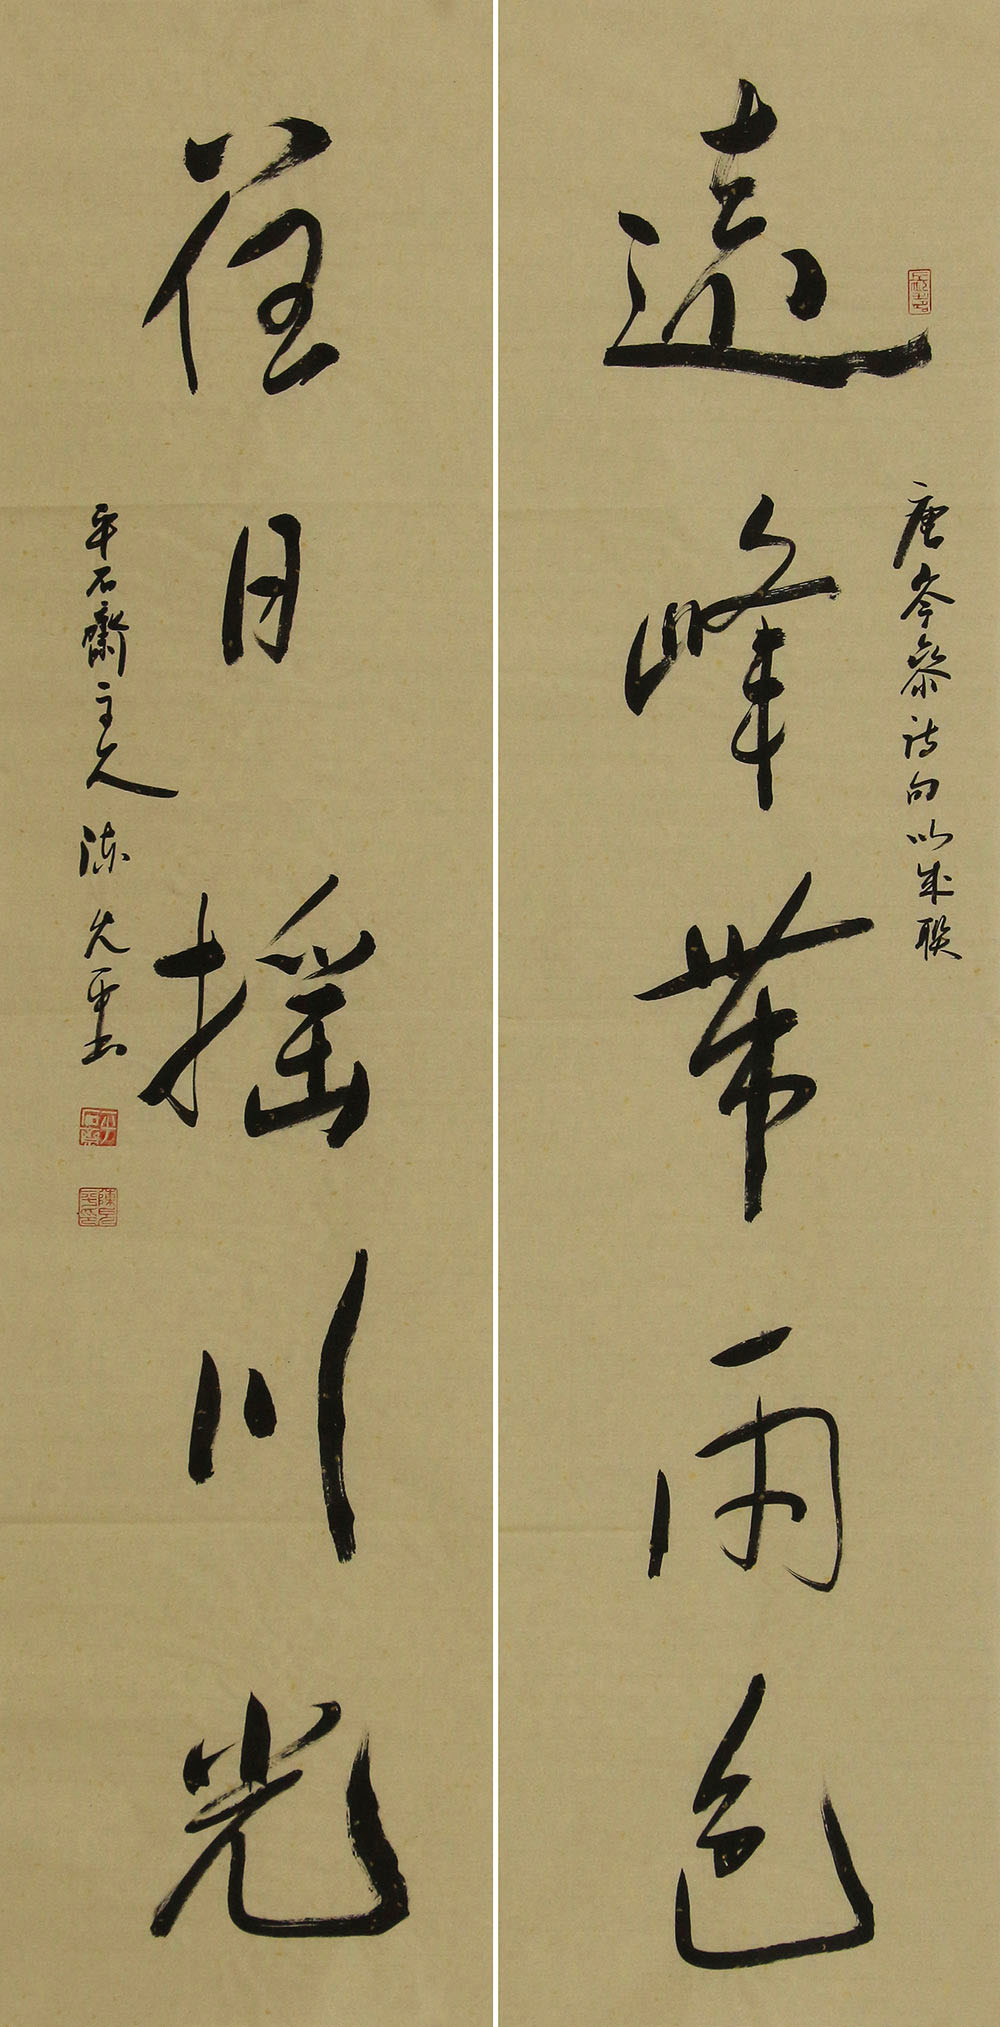 遠峰帶雨色
唐岑參詩句以成聯
落日搖川光
平石齋主人 陳允平書